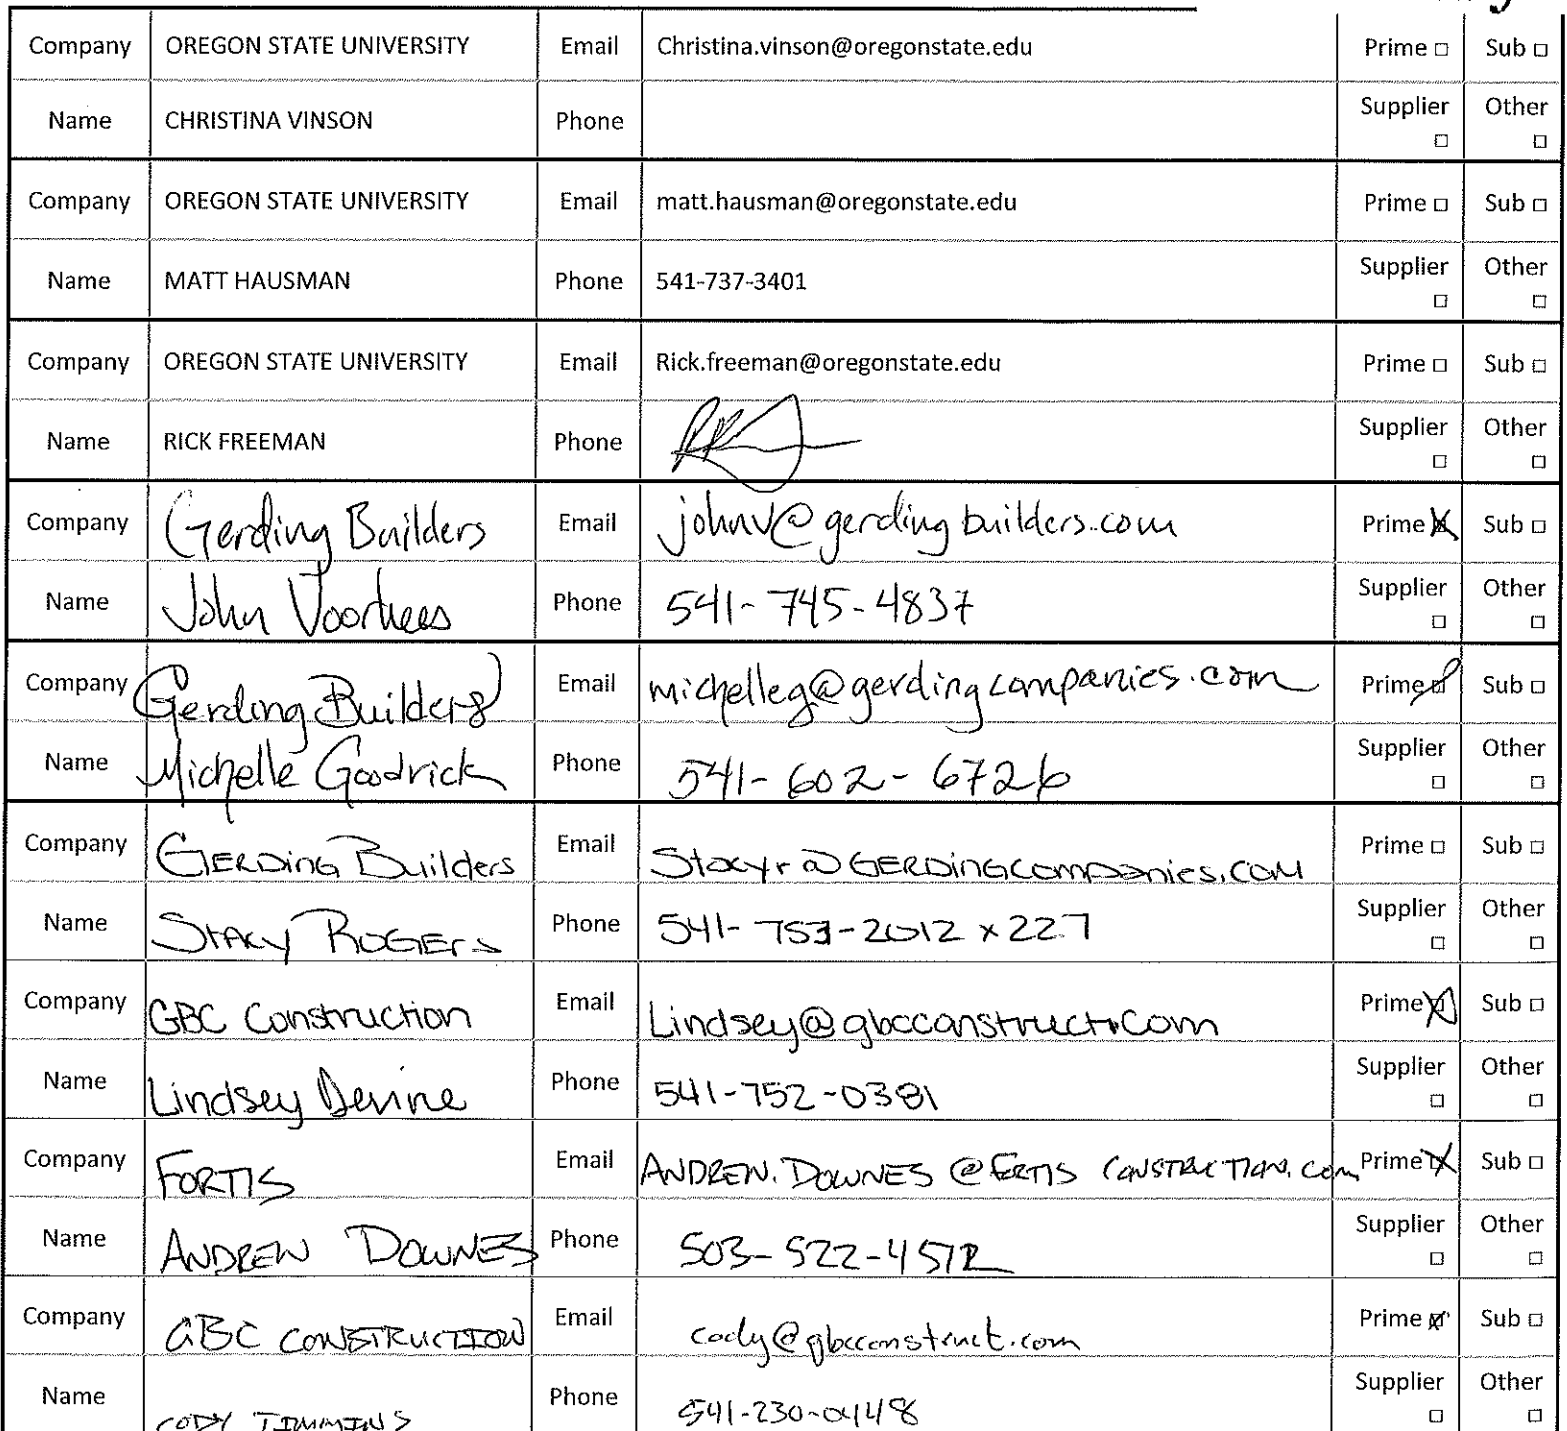 Company OREGON STATE UNIVERSITY Email Christina.vinson@oregonstate.edu Prime □ Sub □
Name CHRISTINA VINSON Phone Supplier □ Other □
Company OREGON STATE UNIVERSITY Email matt.hausman@oregonstate.edu Prime □ Sub □
Name MATT HAUSMAN Phone 541-737-3401 Supplier □ Other □
Company OREGON STATE UNIVERSITY Email Rick.freeman@oregonstate.edu Prime □ Sub □
Name RICK FREEMAN Phone Supplier □ Other □
Company Gerding Builders Email johnv@gerdingbuilders.com Prime ☒ Sub □
Name John Voorhees Phone 541-745-4837 Supplier □ Other □
Company Gerding Builders Email michelleg@gerdingcompanies.com Prime ☑ Sub □
Name Michelle Goodrick Phone 541-602-6726 Supplier □ Other □
Company GERDING Builders Email Stacyr@GERDINGCOMPANIES.COM Prime □ Sub □
Name STACY ROGERS Phone 541-753-2012 x227 Supplier □ Other □
Company GBC Construction Email Lindsey@gbcconstruct.com Prime ☒ Sub □
Name Lindsey Devine Phone 541-752-0381 Supplier □ Other □
Company FORTIS Email ANDREW.DOWNES@FORTISCONSTRUCTION.COM Prime ☒ Sub □
Name ANDREW DOWNES Phone 503-522-4512 Supplier □ Other □
Company GBC CONSTRUCTION Email cody@gbcconstruct.com Prime ☒ Sub □
Name CODY TIMMINS Phone 541-230-0448 Supplier □ Other □